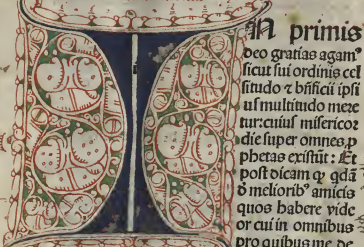 In primis
deo gratias agamꝰ
sicut sui ordinis cel
situdo ⁊ bñficii ipsi
us multitudo mere
tur: cuius misericor
die super omnes ꝓ
phetas existūt: Et
post dicam ꝙ qdā
ð melioribꝰ amicis
quos habere vide
or cui in omnibus
pro quibus me de